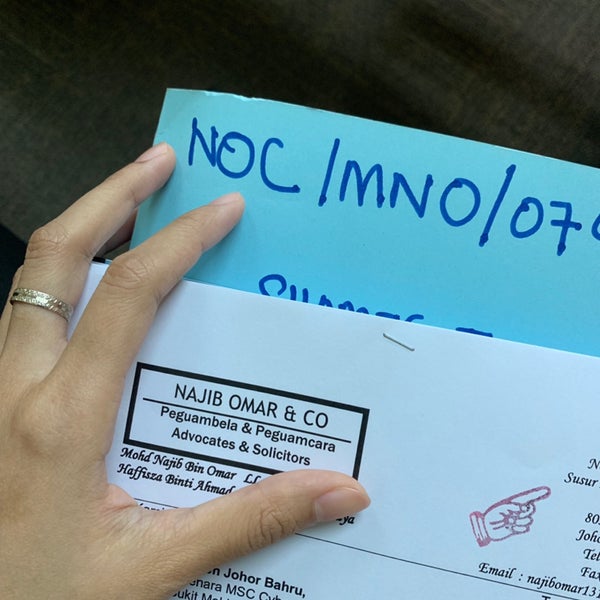 NOC/MNO/07
NAJIB OMAR & CO
Peguambela & Peguamcara
Advocates & Solicitors
Mohd Najib Bin Omar
Haffisza Binti Ahmad
Susur
80
Joho
Tel
Fax
Email : najibomar131
Johor Bahru,
MSC Cyb